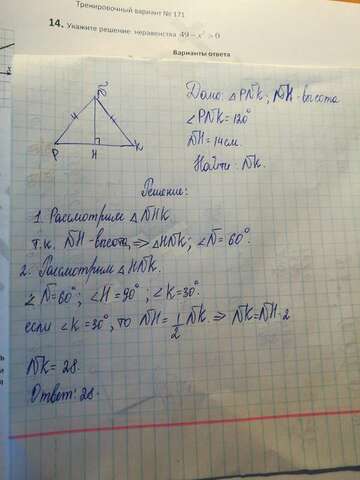 Тренировочный вариант № 171
14. Укажите решение неравенства 49 − x² > 0
Варианты ответа
N
P
H
K
Дано: △PNK; NH - высота
∠PNK = 120°
NH = 14 см.
Найти: NK.
Решение:
1. Рассмотрим △NHK.
т.к. NH - высота, ⇒ △HNK; ∠N = 60°.
2. Расмотрим △HNK.
∠N = 60°; ∠H = 90°; ∠K = 30°.
если ∠K = 30°, то NH = 1/2 NK. ⇒ NK = NH · 2
NK = 28.
Ответ: 28.